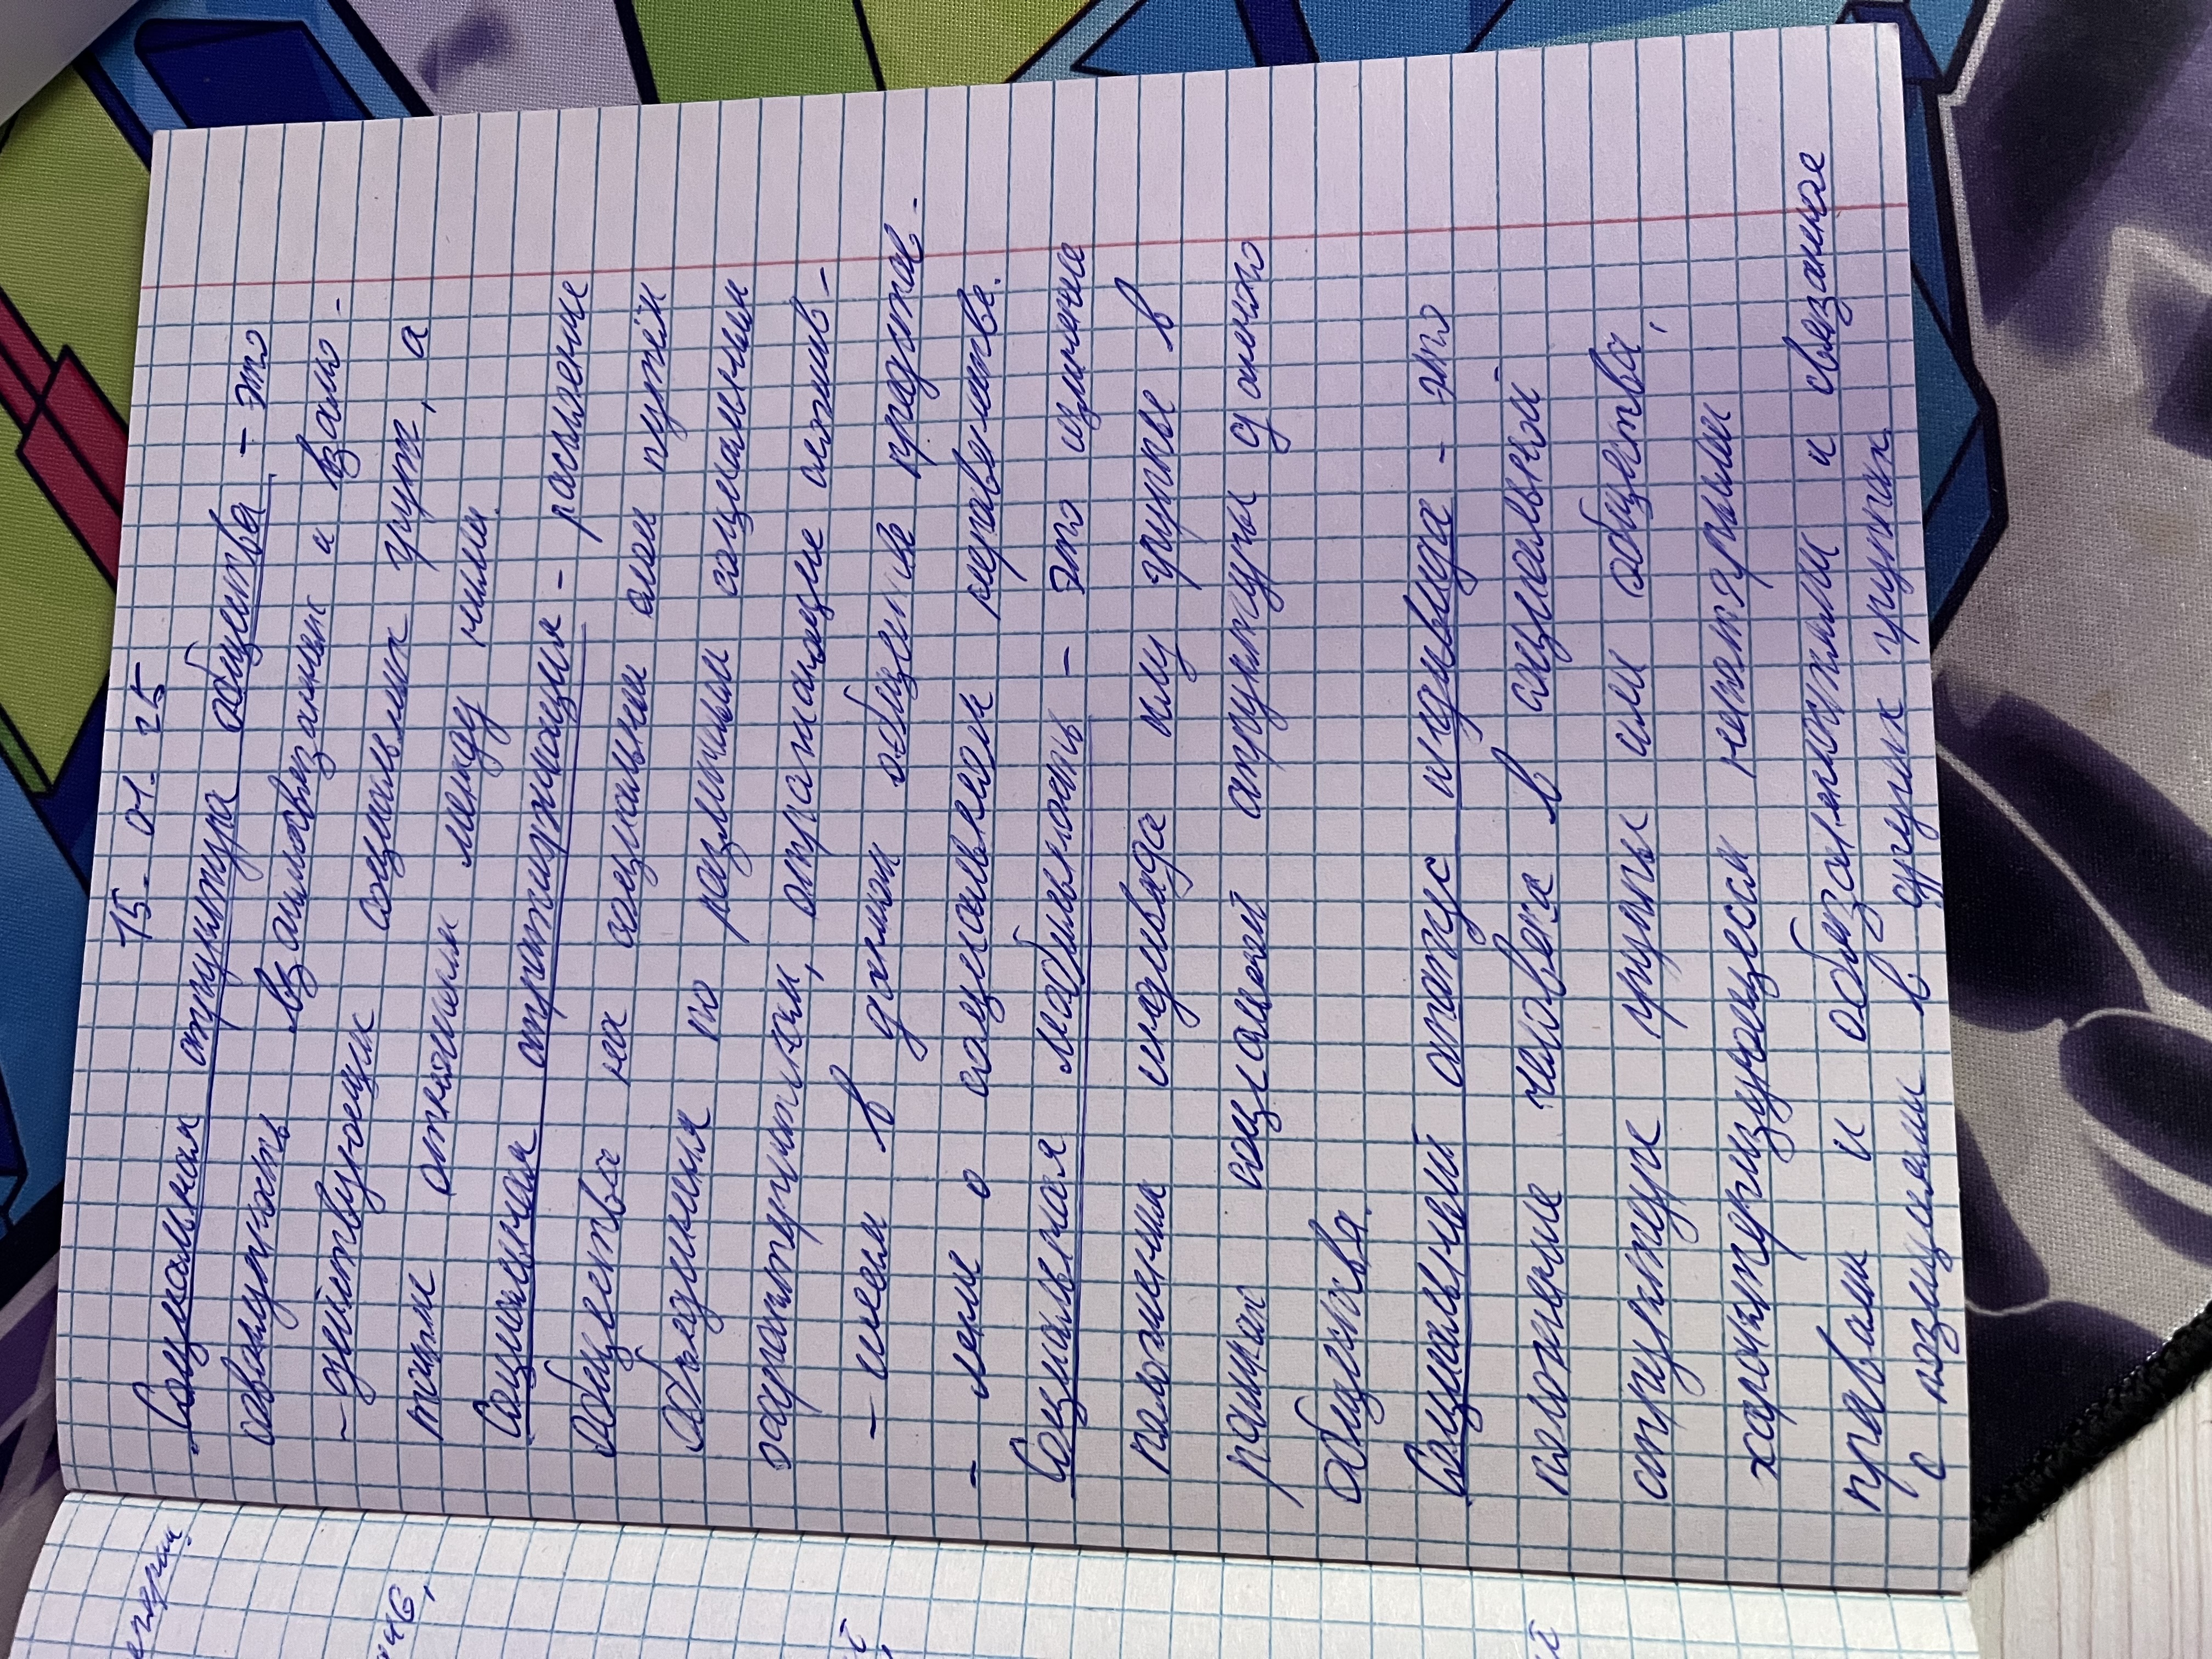 15. 01. 25
Социальная структура общества - это
совокупность взаимосвязанных и взаимо-
-действующих социальных групп, а
также отношения между ними.
Социальная стратификация - расслоение
общества на социальные слои путём
объединения по различным социальным
характеристикам, отражающие сложив-
- шиеся в данном обществе представ-
- ление о социальном неравенстве.
Социальная мобильность - это изменение
положения индивида или группы в
рамках социальной структуры данного
общества.
Социальный статус индивида - это
положение человека в социальной
структуре группы или общества,
характеризующееся некоторыми
правами и обязанностями и связанное
с позициями в других группах